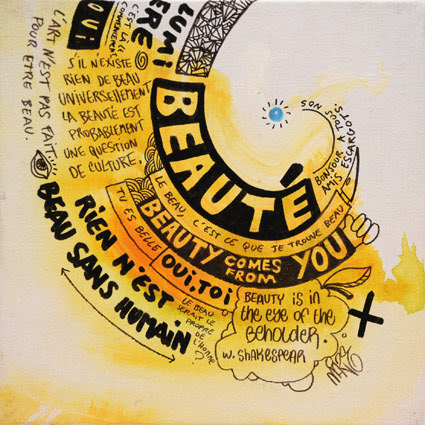 L'ART N'EST PAS FAIT
POUR ETRE BEAU.
OUI
C'EST LA
LUMI
ERE
S'IL N'EXISTE
RIEN DE BEAU
UNIVERSELLEMENT
LA BEAUTÉ EST
PROBABLEMENT
UNE QUESTION
DE CULTURE.
BEAUTÉ
BONJOUR A TOUS NOS
AMIS ESCARGOTS.
LE BEAU, C'EST CE QUE JE TROUVE BEAU
BEAUTY COMES
FROM YOU
TU ES BELLE
OUI, TOI
RIEN N'EST
BEAU SANS HUMAIN
LE BEAU
SERAIT LE
PROPRE
DE L'HOMME
?
BEAUTY IS IN
the eye of the
Beholder.
W. SHAKESPEAR